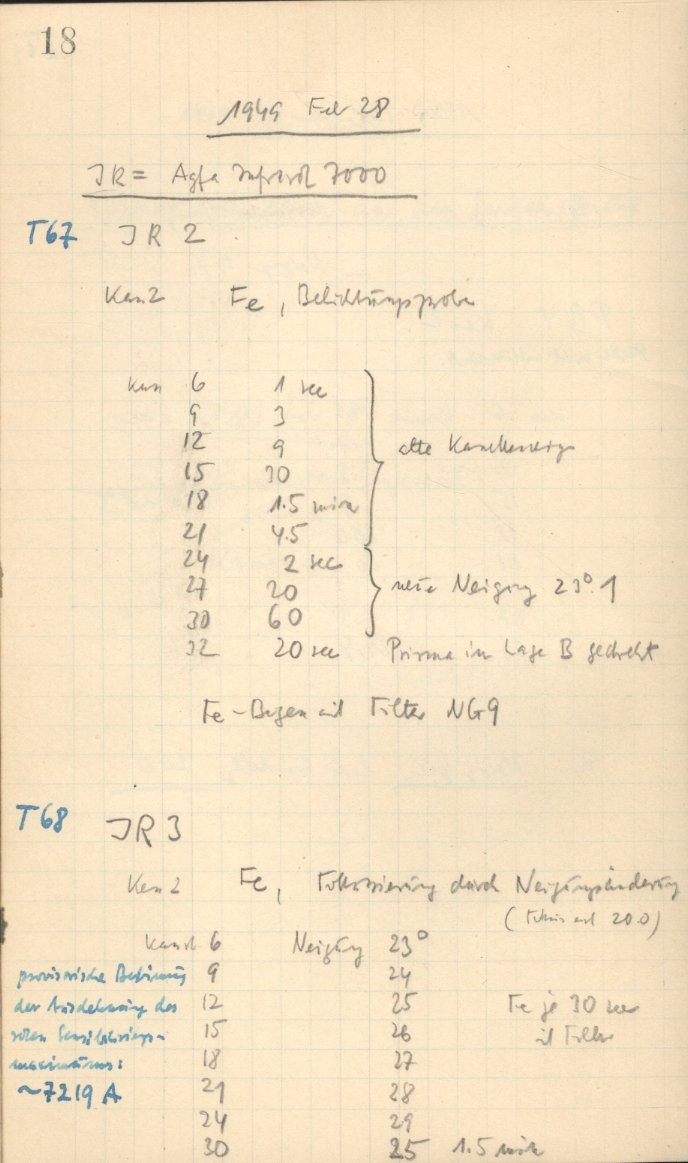 18
1949 Feb 28
IR = Agfa Infrarot 7000
T67 IR 2
Kam 2 Fe, Belichtungsprobe
6 1 sec
9 3
12 9
15 30
18 1.5 min
21 4.5
alte
24 2 sec
27 20
30 60
neue Neigung 23°.1
32 20 sec Prisma in Lage B gedreht
Fe-Bogen mit Filter NG9
T68 IR 3
Kam 2 Fe, Fokussierung durch Neigungsänderung
(Fokus auf 20.0)
6 Neigung 23°
9 24
12 25 Fe je 30 sec
15 26 mit Filter
18 27
21 28
24 29
30 25 1.5 min
provisorische
der Ausdehnung des
roten Sensibilisierungs-
maximums:
~7219 A